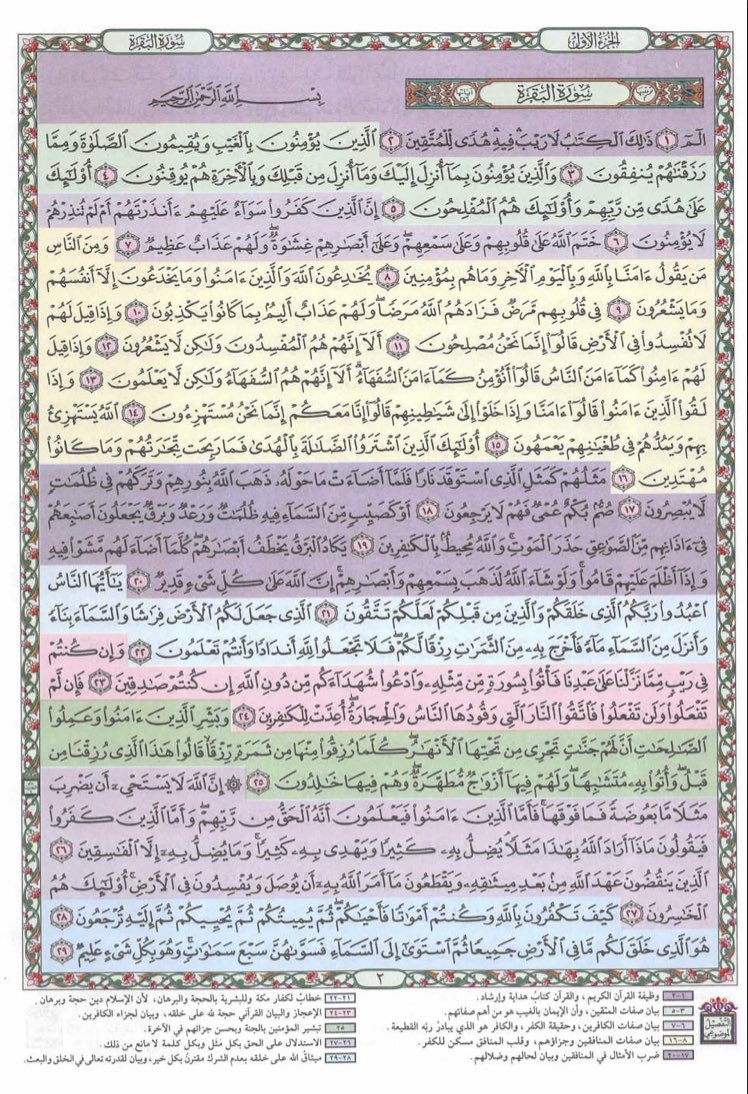 الجزء الأول
سورة البقرة
ترتيبها ٢ سُورَةُ البَقَرَةِ آياتها ٢٨٦
بِسْمِ اللَّهِ الرَّحْمَٰنِ الرَّحِيمِ
الٓمٓ ١ ذَٰلِكَ الْكِتَٰبُ لَا رَيْبَ فِيهِ هُدًى لِّلْمُتَّقِينَ ٢ الَّذِينَ يُؤْمِنُونَ بِالْغَيْبِ وَيُقِيمُونَ الصَّلَوٰةَ وَمِمَّا
رَزَقْنَٰهُمْ يُنفِقُونَ ٣ وَالَّذِينَ يُؤْمِنُونَ بِمَآ أُنزِلَ إِلَيْكَ وَمَآ أُنزِلَ مِن قَبْلِكَ وَبِالْآخِرَةِ هُمْ يُوقِنُونَ ٤ أُو۟لَٰٓئِكَ
عَلَىٰ هُدًى مِّن رَّبِّهِمْ وَأُو۟لَٰٓئِكَ هُمُ الْمُفْلِحُونَ ٥ إِنَّ الَّذِينَ كَفَرُوا۟ سَوَآءٌ عَلَيْهِمْ ءَأَنذَرْتَهُمْ أَمْ لَمْ تُنذِرْهُمْ
لَا يُؤْمِنُونَ ٦ خَتَمَ اللَّهُ عَلَىٰ قُلُوبِهِمْ وَعَلَىٰ سَمْعِهِمْ ۖ وَعَلَىٰٓ أَبْصَٰرِهِمْ غِشَٰوَةٌ ۖ وَلَهُمْ عَذَابٌ عَظِيمٌ ٧ وَمِنَ النَّاسِ
مَن يَقُولُ ءَامَنَّا بِاللَّهِ وَبِالْيَوْمِ الْآخِرِ وَمَا هُم بِمُؤْمِنِينَ ٨ يُخَٰدِعُونَ اللَّهَ وَالَّذِينَ ءَامَنُوا۟ وَمَا يَخْدَعُونَ إِلَّآ أَنفُسَهُمْ
وَمَا يَشْعُرُونَ ٩ فِى قُلُوبِهِم مَّرَضٌ فَزَادَهُمُ اللَّهُ مَرَضًا ۖ وَلَهُمْ عَذَابٌ أَلِيمٌۢ بِمَا كَانُوا۟ يَكْذِبُونَ ١٠ وَإِذَا قِيلَ لَهُمْ
لَا تُفْسِدُوا۟ فِى الْأَرْضِ قَالُوٓا۟ إِنَّمَا نَحْنُ مُصْلِحُونَ ١١ أَلَآ إِنَّهُمْ هُمُ الْمُفْسِدُونَ وَلَٰكِن لَّا يَشْعُرُونَ ١٢ وَإِذَا قِيلَ
لَهُمْ ءَامِنُوا۟ كَمَآ ءَامَنَ النَّاسُ قَالُوٓا۟ أَنُؤْمِنُ كَمَآ ءَامَنَ السُّفَهَآءُ ۗ أَلَآ إِنَّهُمْ هُمُ السُّفَهَآءُ وَلَٰكِن لَّا يَعْلَمُونَ ١٣ وَإِذَا
لَقُوا۟ الَّذِينَ ءَامَنُوا۟ قَالُوٓا۟ ءَامَنَّا وَإِذَا خَلَوْا۟ إِلَىٰ شَيَٰطِينِهِمْ قَالُوٓا۟ إِنَّا مَعَكُمْ إِنَّمَا نَحْنُ مُسْتَهْزِءُونَ ١٤ اللَّهُ يَسْتَهْزِئُ
بِهِمْ وَيَمُدُّهُمْ فِى طُغْيَٰنِهِمْ يَعْمَهُونَ ١٥ أُو۟لَٰٓئِكَ الَّذِينَ اشْتَرَوُا۟ الضَّلَٰلَةَ بِالْهُدَىٰ فَمَا رَبِحَت تِّجَٰرَتُهُمْ وَمَا كَانُوا۟
مُهْتَدِينَ ١٦ مَثَلُهُمْ كَمَثَلِ الَّذِى اسْتَوْقَدَ نَارًا فَلَمَّآ أَضَآءَتْ مَا حَوْلَهُۥ ذَهَبَ اللَّهُ بِنُورِهِمْ وَتَرَكَهُمْ فِى ظُلُمَٰتٍ
لَّا يُبْصِرُونَ ١٧ صُمٌّۢ بُكْمٌ عُمْىٌ فَهُمْ لَا يَرْجِعُونَ ١٨ أَوْ كَصَيِّبٍ مِّنَ السَّمَآءِ فِيهِ ظُلُمَٰتٌ وَرَعْدٌ وَبَرْقٌ يَجْعَلُونَ أَصَٰبِعَهُمْ
فِىٓ ءَاذَانِهِم مِّنَ الصَّوَٰعِقِ حَذَرَ الْمَوْتِ ۚ وَاللَّهُ مُحِيطٌۢ بِالْكَٰفِرِينَ ١٩ يَكَادُ الْبَرْقُ يَخْطَفُ أَبْصَٰرَهُمْ ۖ كُلَّمَآ أَضَآءَ لَهُم مَّشَوْا۟ فِيهِ
وَإِذَآ أَظْلَمَ عَلَيْهِمْ قَامُوا۟ ۚ وَلَوْ شَآءَ اللَّهُ لَذَهَبَ بِسَمْعِهِمْ وَأَبْصَٰرِهِمْ ۚ إِنَّ اللَّهَ عَلَىٰ كُلِّ شَىْءٍ قَدِيرٌ ٢٠ يَٰٓأَيُّهَا النَّاسُ
اعْبُدُوا۟ رَبَّكُمُ الَّذِى خَلَقَكُمْ وَالَّذِينَ مِن قَبْلِكُمْ لَعَلَّكُمْ تَتَّقُونَ ٢١ الَّذِى جَعَلَ لَكُمُ الْأَرْضَ فِرَٰشًا وَالسَّمَآءَ بِنَآءً
وَأَنزَلَ مِنَ السَّمَآءِ مَآءً فَأَخْرَجَ بِهِۦ مِنَ الثَّمَرَٰتِ رِزْقًا لَّكُمْ ۖ فَلَا تَجْعَلُوا۟ لِلَّهِ أَندَادًا وَأَنتُمْ تَعْلَمُونَ ٢٢ وَإِن كُنتُمْ
فِى رَيْبٍ مِّمَّا نَزَّلْنَا عَلَىٰ عَبْدِنَا فَأْتُوا۟ بِسُورَةٍ مِّن مِّثْلِهِۦ وَادْعُوا۟ شُهَدَآءَكُم مِّن دُونِ اللَّهِ إِن كُنتُمْ صَٰدِقِينَ ٢٣ فَإِن لَّمْ
تَفْعَلُوا۟ وَلَن تَفْعَلُوا۟ فَاتَّقُوا۟ النَّارَ الَّتِى وَقُودُهَا النَّاسُ وَالْحِجَارَةُ ۖ أُعِدَّتْ لِلْكَٰفِرِينَ ٢٤ وَبَشِّرِ الَّذِينَ ءَامَنُوا۟ وَعَمِلُوا۟
الصَّٰلِحَٰتِ أَنَّ لَهُمْ جَنَّٰتٍ تَجْرِى مِن تَحْتِهَا الْأَنْهَٰرُ ۖ كُلَّمَا رُزِقُوا۟ مِنْهَا مِن ثَمَرَةٍ رِّزْقًا ۙ قَالُوا۟ هَٰذَا الَّذِى رُزِقْنَا مِن
قَبْلُ ۖ وَأُتُوا۟ بِهِۦ مُتَشَٰبِهًا ۖ وَلَهُمْ فِيهَآ أَزْوَٰجٌ مُّطَهَّرَةٌ ۖ وَهُمْ فِيهَا خَٰلِدُونَ ٢٥ ۞ إِنَّ اللَّهَ لَا يَسْتَحْىِۦٓ أَن يَضْرِبَ
مَثَلًا مَّا بَعُوضَةً فَمَا فَوْقَهَا ۚ فَأَمَّا الَّذِينَ ءَامَنُوا۟ فَيَعْلَمُونَ أَنَّهُ الْحَقُّ مِن رَّبِّهِمْ ۖ وَأَمَّا الَّذِينَ كَفَرُوا۟
فَيَقُولُونَ مَاذَآ أَرَادَ اللَّهُ بِهَٰذَا مَثَلًا ۘ يُضِلُّ بِهِۦ كَثِيرًا وَيَهْدِى بِهِۦ كَثِيرًا ۚ وَمَا يُضِلُّ بِهِۦٓ إِلَّا الْفَٰسِقِينَ ٢٦
الَّذِينَ يَنقُضُونَ عَهْدَ اللَّهِ مِنۢ بَعْدِ مِيثَٰقِهِۦ وَيَقْطَعُونَ مَآ أَمَرَ اللَّهُ بِهِۦٓ أَن يُوصَلَ وَيُفْسِدُونَ فِى الْأَرْضِ ۚ أُو۟لَٰٓئِكَ هُمُ
الْخَٰسِرُونَ ٢٧ كَيْفَ تَكْفُرُونَ بِاللَّهِ وَكُنتُمْ أَمْوَٰتًا فَأَحْيَٰكُمْ ۖ ثُمَّ يُمِيتُكُمْ ثُمَّ يُحْيِيكُمْ ثُمَّ إِلَيْهِ تُرْجَعُونَ ٢٨
هُوَ الَّذِى خَلَقَ لَكُم مَّا فِى الْأَرْضِ جَمِيعًا ثُمَّ اسْتَوَىٰٓ إِلَى السَّمَآءِ فَسَوَّىٰهُنَّ سَبْعَ سَمَٰوَٰتٍ ۚ وَهُوَ بِكُلِّ شَىْءٍ عَلِيمٌ ٢٩
٢
التفصيل الموضوعي
١-٢ وظيفة القرآن الكريم، والقرآن كتاب هداية وإرشاد.
٣-٥ بيان صفات المتقين، وأن الإيمان بالغيب هو من أهم صفاتهم.
٦-٧ بيان صفات الكافرين، وحقيقة الكفر، والكافر هو الذي يبادر ربّه القطيعة.
٨-١٦ بيان صفات المنافقين وجزاؤهم، وقلب المنافق مسكن للكفر.
١٧-٢٠ ضرب الأمثال في المنافقين وبيان لحالهم وضلالهم.
٢١-٢٢ خطاب لكفار مكة وللبشرية بالحجة والبرهان، لأن الإسلام دين حجة وبرهان.
٢٣-٢٤ الإعجاز والبيان القرآني حجة لله على خلقه، وبيان لجزاء الكافرين.
٢٥ تبشير المؤمنين بالجنة وبحسن جزائهم في الآخرة.
٢٦-٢٧ الاستدلال على الحق بكل مثل وبكل كلمة لا مانع من ذلك.
٢٨-٢٩ ميثاق الله على خلقه بعدم الشرك مقترن بكل خير، وبيان لقدرته تعالى في الخلق والبعث.